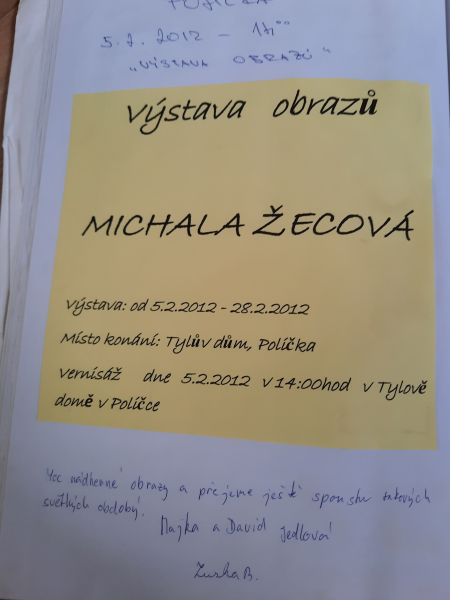 POLIČKA
5.2.2012 - 14⁰⁰
"VÝSTAVA OBRAZŮ"
Výstava obrazů
MICHALA ŽECOVÁ
Výstava: od 5.2.2012 - 28.2.2012
Místo konání: Tylův dům, Polička
Vernisáž dne 5.2.2012 v 14:00hod v Tylově
domě v Poličce
nádherné obrazy a přejeme ještě spoustu takových
světlých období!
Majka a David Jedlovi
Zuzka B.